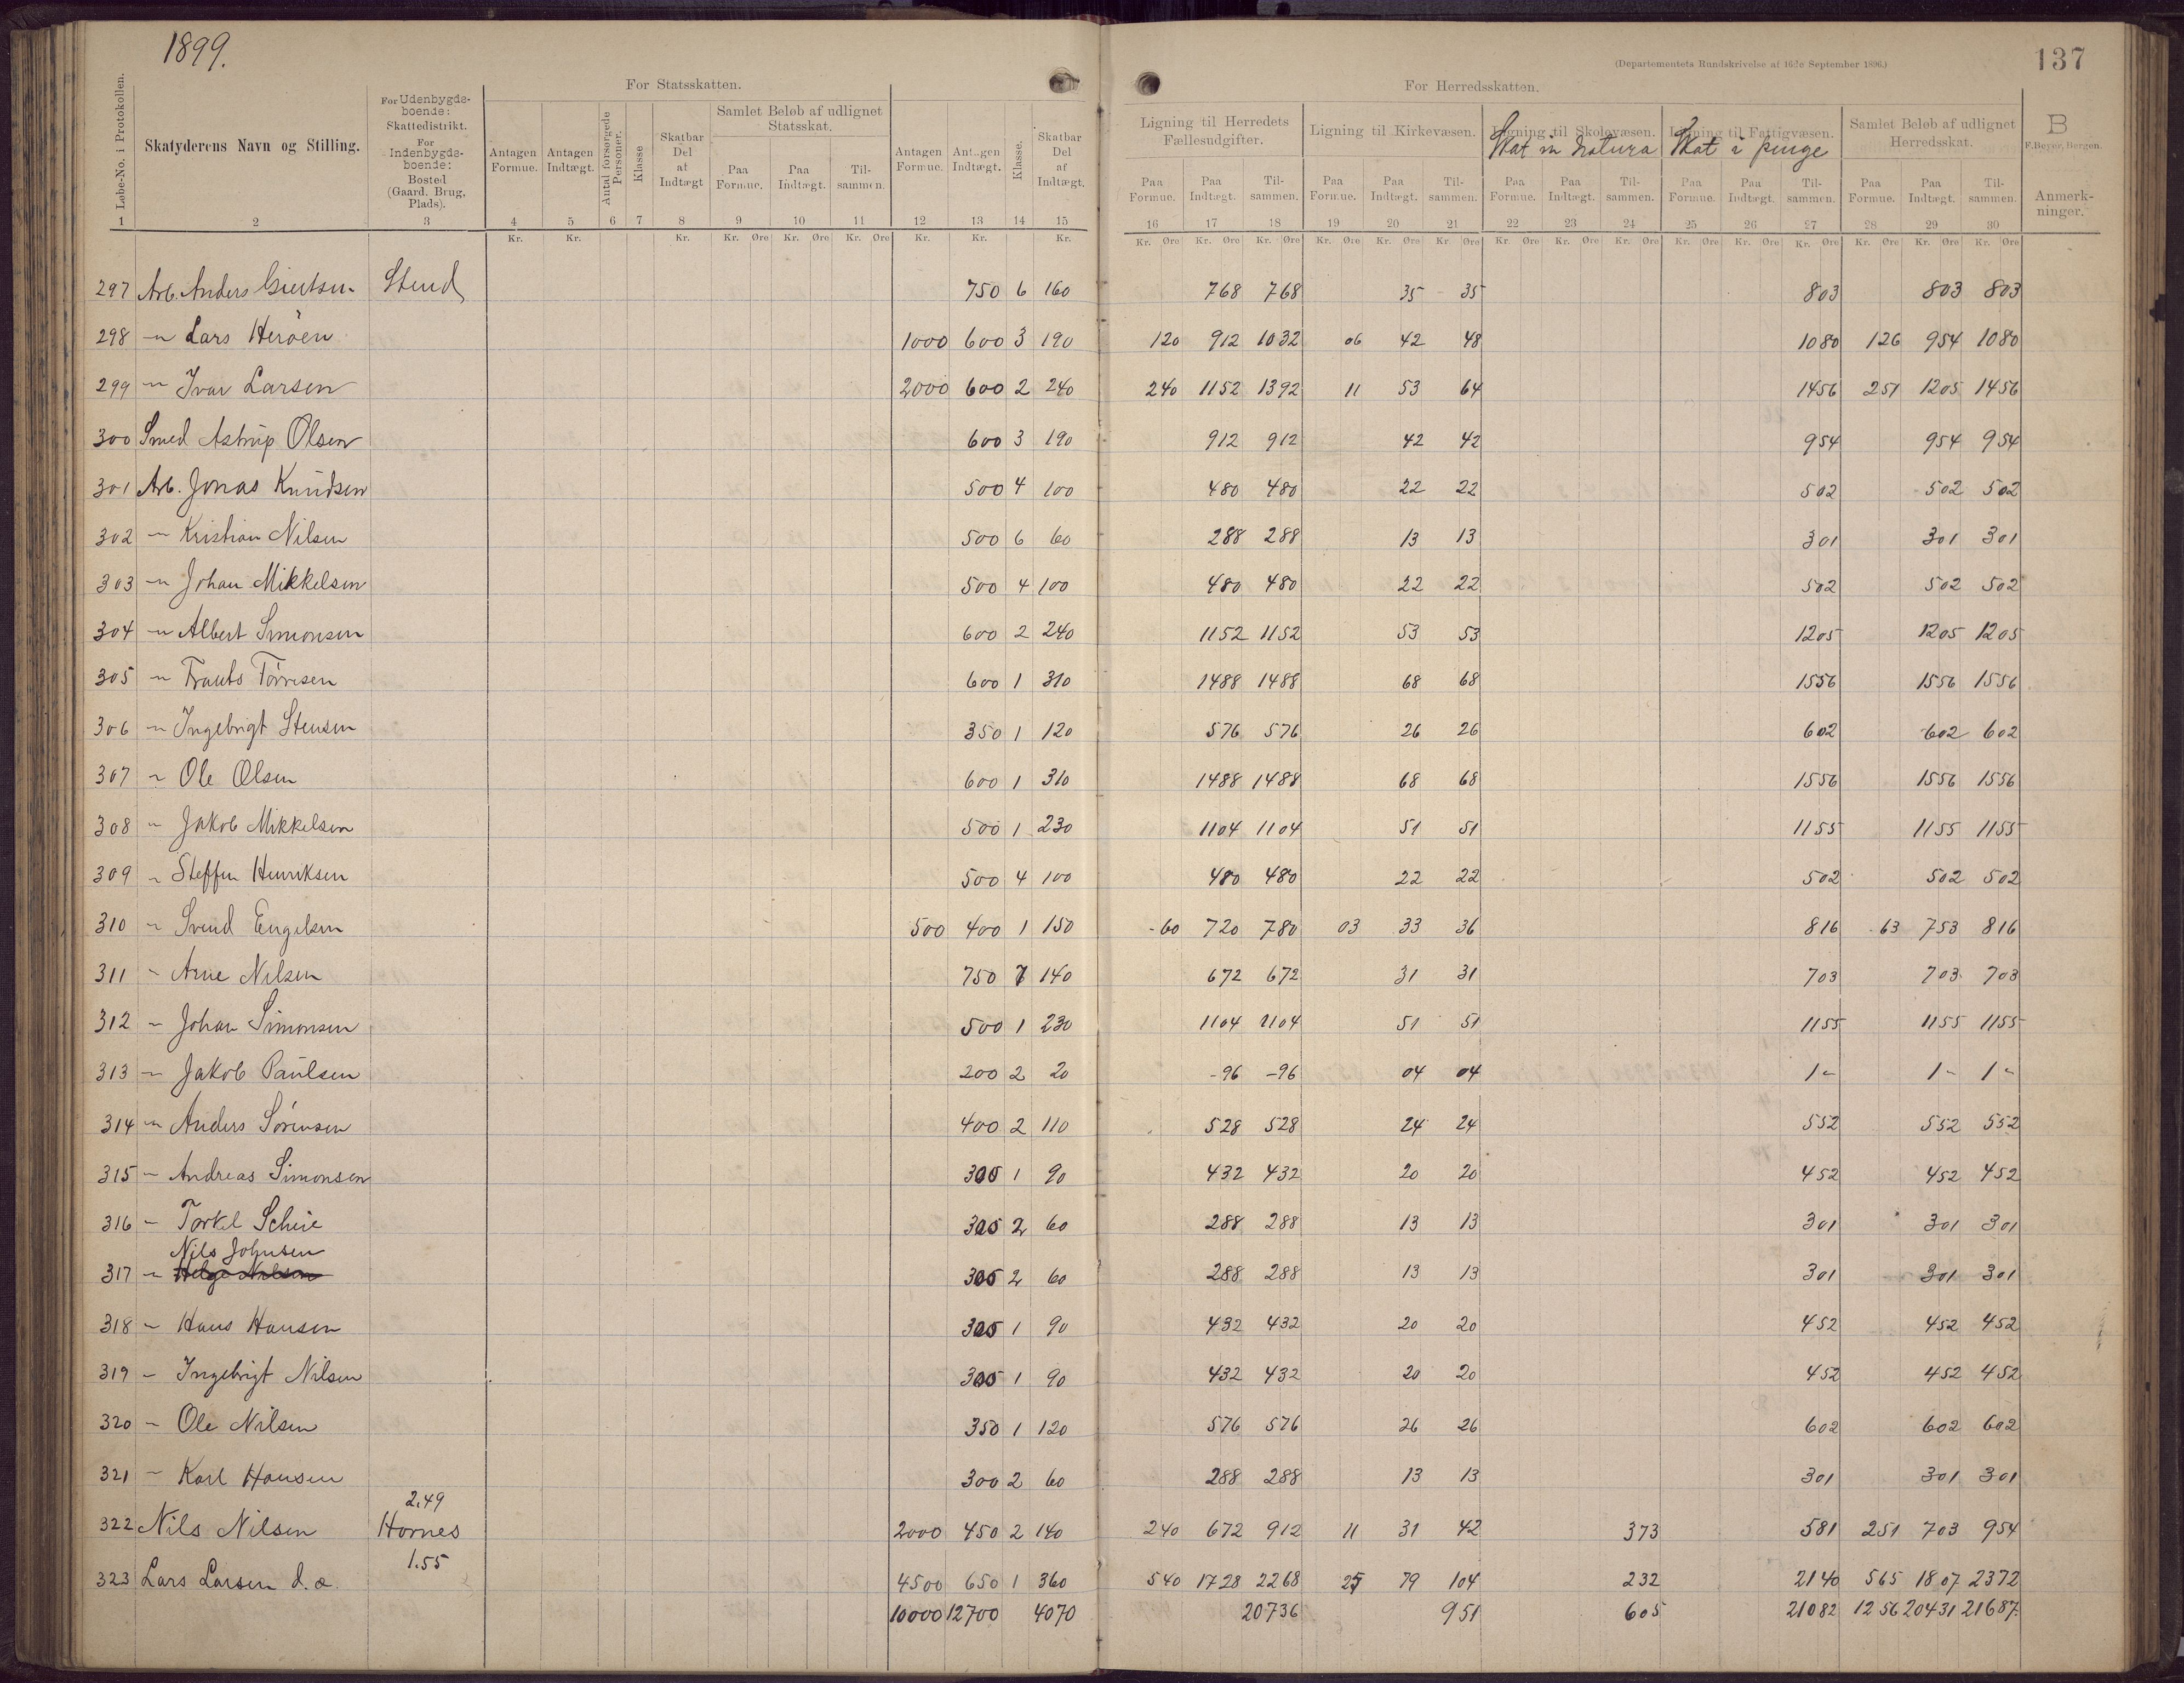 1899.
137
(Departementets Rundskrivelse af 16de September 1896.)
For Statsskatten.
For Herredsskatten.
Løbe-No. i Protokollen.
Skatyderens Navn og Stilling.
For Udenbygds-
boende:
Skattedistrikt.
For
Indenbygds-
boende:
Bosted
(Gaard, Brug,
Plads).
Antagen Formue.
Antagen Indtægt.
Antal forsørgede Personer.
Klasse
Skatbar Del af Indtægt
Samlet Beløb af udlignet Statsskat.
Paa Formue. Paa Indtægt. Til-sammen.
Antagen Formue.
Antagen Indtægt.
Klasse.
Skatbar Del af Indtægt.
Ligning til Herredets Fællesudgifter.
Paa Formue. Paa Indtægt. Til-sammen.
Ligning til Kirkevæsen.
Paa Formue. Paa Indtægt. Til-sammen.
Ligning til Skolevæsen.
Skat in natura
Paa Formue. Paa Indtægt. Til-sammen.
Ligning til Fattigvæsen.
Skat i penge
Paa Formue. Paa Indtægt. Til-sammen.
Samlet Beløb af udlignet Herredsskat.
Paa Formue. Paa Indtægt. Til-sammen.
B
F. Beyer, Bergen.
Anmerk-ninger.
1 2 3 4 5 6 7 8 9 10 11 12 13 14 15 16 17 18 19 20 21 22 23 24 25 26 27 28 29 30
Kr. Kr. Kr. Kr. Øre Kr. Øre Kr. Øre Kr. Kr. Kr. Kr. Øre Kr. Øre Kr. Øre Kr. Øre Kr. Øre Kr. Øre Kr. Øre Kr. Øre Kr. Øre Kr. Øre Kr. Øre Kr. Øre Kr. Øre Kr. Øre Kr. Øre
297 Arb. Anders Stend 750 6 160 768 768 35 35 803 803 803
298 -"- Lars Herøen 1000 600 3 190 120 912 1032 06 42 48 1080 126 954 1080
299 -"- Ivar Larsen 2000 600 2 240 240 1152 1392 11 53 64 1456 251 1205 1456
300 Smed Astrup Olsen 600 3 190 912 912 42 42 954 954 954
301 Arb. Jonas Knudsen 500 4 100 480 480 22 22 502 502 502
302 -"- Kristian Nilsen 500 6 60 288 288 13 13 301 301 301
303 -"- Johan Mikkelsen 500 4 100 480 480 22 22 502 502 502
304 -"- Albert Simonsen 600 2 240 1152 1152 53 53 1205 1205 1205
305 -"- Frants Tørresen 600 1 310 1488 1488 68 68 1556 1556 1556
306 -"- Ingebrigt Stensen 350 1 120 576 576 26 26 602 602 602
307 -"- Ole Olsen 600 1 310 1488 1488 68 68 1556 1556 1556
308 -"- Jakob Mikkelsen 500 1 230 1104 1104 51 51 1155 1155 1155
309 -"- Steffen Henriksen 500 4 100 480 480 22 22 502 502 502
310 -"- Svend Engelsen 500 400 1 150 -60 720 780 03 33 36 816 63 753 816
311 -"- Arne Nilsen 750 7 140 672 672 31 31 703 703 703
312 -"- Johan Simonsen 500 1 230 1104 1104 51 51 1155 1155 1155
313 -"- Jakob Paulsen 200 2 20 -96 -96 04 04 1- 1- 1-
314 -"- Anders Sørensen 400 2 110 528 528 24 24 552 552 552
315 -"- Andreas Simonsen 305 1 90 432 432 20 20 452 452 452
316 -"- Torkel Scheie 305 2 60 288 288 13 13 301 301 301
Nils Johnsen
317 -"- Helge Nilsen 305 2 60 288 288 13 13 301 301 301
318 -"- Hans Hansen 305 1 90 432 432 20 20 452 452 452
319 -"- Ingebrigt Nilsen 305 1 90 432 432 20 20 452 452 452
320 -"- Ole Nilsen 350 1 120 576 576 26 26 602 602 602
321 -"- Karl Hansen 300 2 60 288 288 13 13 301 301 301
2.49
322 Nils Nilsen Hornes 2000 450 2 140 240 672 912 11 31 42 373 581 251 703 954
1.55
323 Lars Larsen d. æ. 4500 650 1 360 540 1728 2268 25 79 104 232 2140 565 1807 2372
10000 12700 4070 20736 951 605 21082 1256 20431 21687